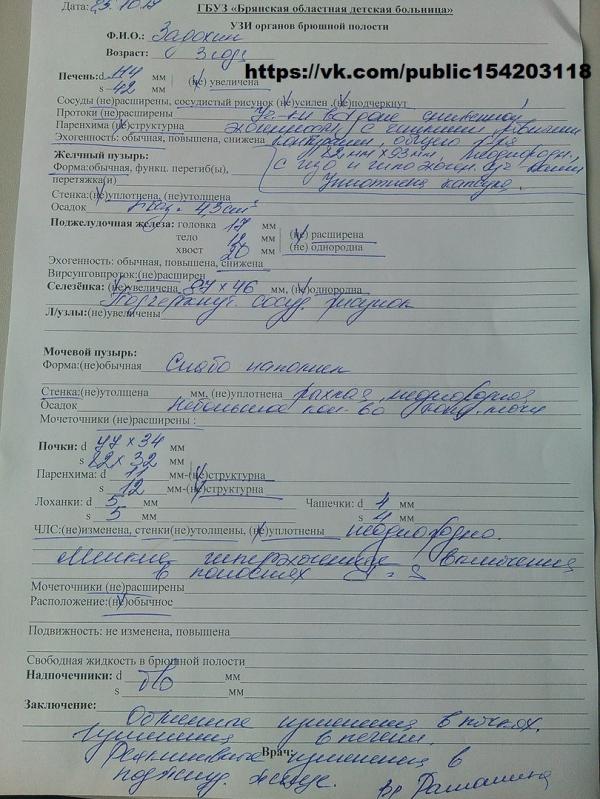 Дата:
ГБУЗ «Брянская областная детская больница»
УЗИ органов брюшной полости
Ф.И.О.:
Возраст: 3 года
https://vk.com/public154203118
Печень: d 114 мм (не) увеличена
s 42 мм
Сосуды (не)расширены, сосудистый рисунок (не)усилен ,(не)подчеркнут
Протоки (не)расширены
Паренхима (не)структурна
Эхогенность: обычная, повышена, снижена
Желчный пузырь:
Форма:обычная, функ. перегиб(ы), неоднородн.,
перетяжка(и)
Стенка:(не)уплотнена, (не)утолщена Уплотнена капсула.
Осадок
Поджелудочная железа: головка 17 мм
тело 12 мм (не) расширена
хвост 20 мм (не) однородна
Эхогенность: обычная, повышена, снижена
Вирсунговпроток:(не)расширен
Селезёнка: (не)увеличена 87 х 46 мм, (не)однородна
Подчеркнут сосуд. рисунок
Л/узлы:(не)увеличены
Мочевой пузырь:
Форма:(не)обычная Слабо наполнен
Стенка:(не)утолщена мм, (не)уплотнена рыхлая, неоднородная
Осадок Небольшое кол-во мочи
Мочеточники (не)расширены :
Почки: d 77 х 34 мм
s 82 х 32 мм
Паренхима: d 11 мм-(не)структурна
s 12 мм-(не)структурна
Лоханки: d 5 мм Чашечки: d 4 мм
s 5 мм s 4 мм
ЧЛС:(не)изменена, стенки(не)утолщены, (не)уплотнены неоднородно.
Мелкие гиперэхогенные включения
в полостях d = s
Мочеточники (не)расширены
Расположение:(не)обычное
Подвижность: не изменена, повышена
Свободная жидкость в брюшной полости
Надпочечники: d мм
s мм
Заключение:
Обменные изменения в почках.
Изменения в печени.
Врач:
Реактивные изменения в
поджелуд. железе.